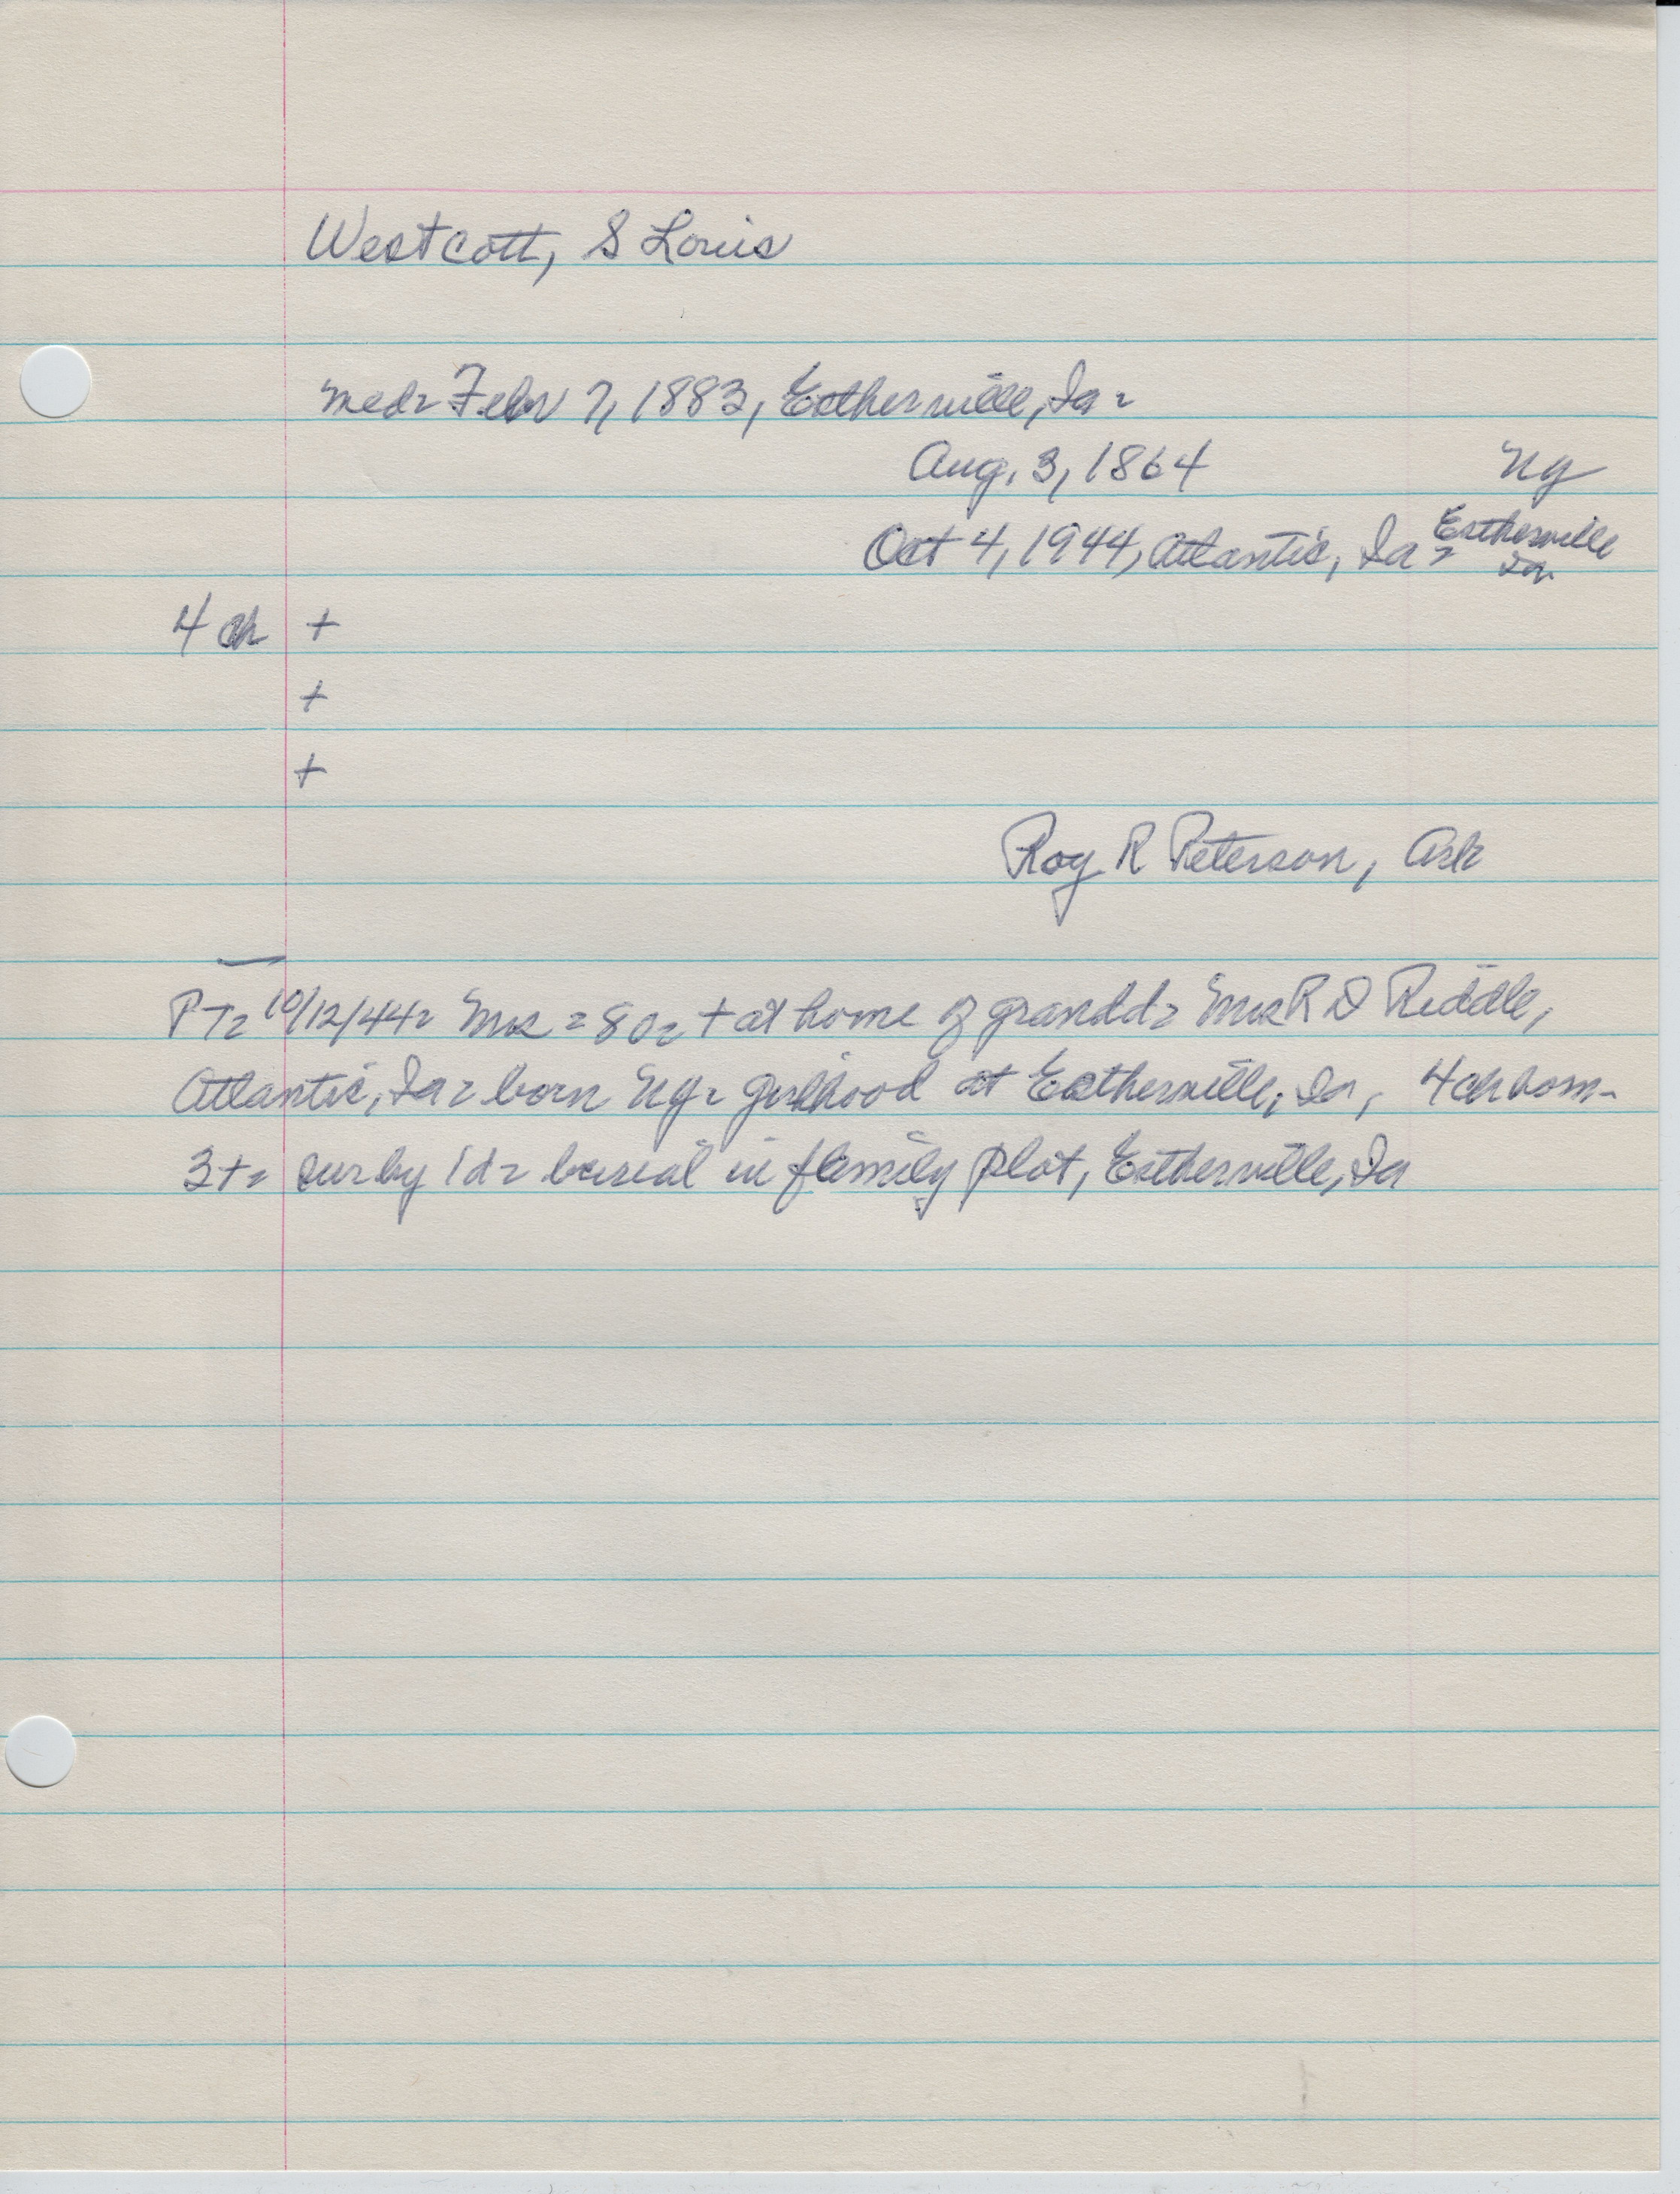 Westcott, S Louis
med= Febr 7, 1883, Estherville, Ia=
Aug. 3, 1864 Ny
Oct 4, 1944, Atlantic, Ia= Estherville Ia
4 ch +
+
+
Roy R Peterson, Ark
PT= 10/12/44= Mrs = 80= + at home of grandd= Mrs R D Riddle,
Atlantic, Ia= born Ny= girlhood at Estherville, Ia, 4 ch born-
3+= sur by 1d= burial in family plot, Estherville, Ia